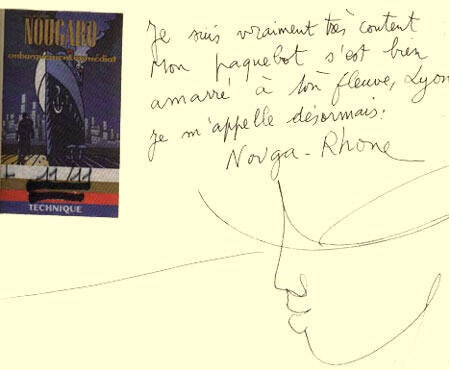 NOUGARO
embarquement immédiat
11 11
TECHNIQUE
Je suis vraiment très content
Mon paquebot s'est bien
amarré à ton fleuve, Lyon
je m'appelle désormais:
Nouga-Rhone